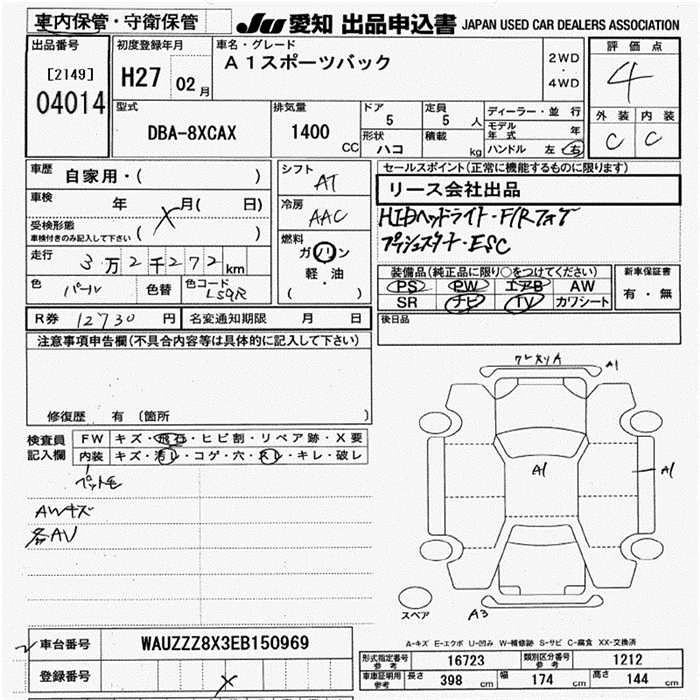 車内保管・守衛保管
JU 愛知 出品申込書 JAPAN USED CAR DEALERS ASSOCIATION
出品番号 [2149] 04014
初度登録年月 H27 02月
車名・グレード A1スポーツバック
2WD・4WD
評価点 4
外装 C 内装 C
型式 DBA-8XCAX
排気量 1400 CC
ドア 5
定員 5人
形状 ハコ
積載 kg
ディーラー・並行
モデル年式 年
ハンドル 左 右
車歴 自家用・( )
車検 年 X 月( 日)
受検形態 車検付きのみ記入して下さい ( )
走行 3万2千272km
色 パール 色替 色コード LS9R
シフト AT
冷房 AAC
燃料 ガソリン 軽・油 ( )
セールスポイント(正常に機能するものに限ります)
リース会社出品
HIDヘッドライト・F/Rフォグ
プッシュスタート・ESC
装備品(純正品に限り○をつけてください)
PS PW エアB AW
SR ナビ TV カワシート
新車保証書 有・無
R券 12730円 名変通知期限 月 日
後日品
注意事項申告欄(不具合内容等は具体的に記入して下さい)
修復歴 有 (箇所 )
検査員記入欄
FW キズ・飛石・ヒビ割・リペア跡・X要
内装 キズ・汚レ・コゲ・穴・スレ・キレ・破レ
ペット毛
AWキズ
各AU
A1
A1
A1
スペア
A3
A-キズ E-エクボ U-凹み W-補修跡 S-サビ C-腐食 XX-交換済
車台番号 WAUZZZ8X3EB150969
登録番号 X
形式指定番号 参考 16723 類別区分番号 参考 1212
車庫証明用 参考 長さ 398 cm 幅 174 cm 高さ 144 cm